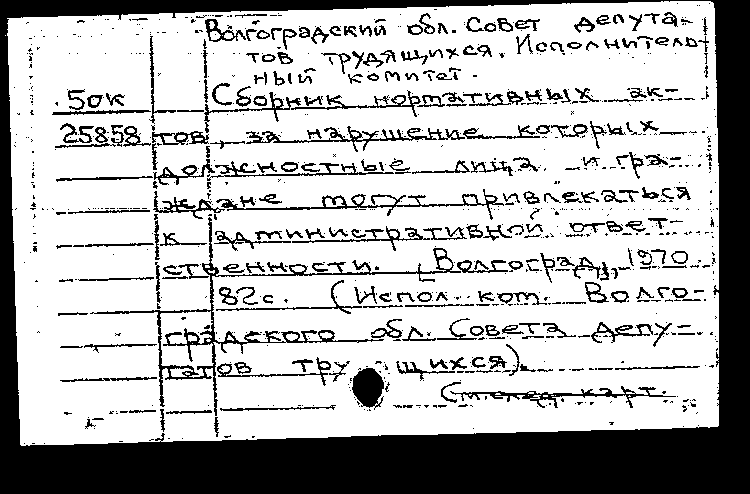 Волгоградский обл. Совет депута-
тов трудящихся. Исполнитель-
ный комитет.
50к Сборник нормативных ак-
25858 тов, за нарушение которых
должностные лица и гра-
ждане могут привлекаться
к административной ответ-
ственности. [Волгоград], 1970.
82с. (Испол. ком. Волго-
градского обл. Совета депу-
татов тру щихся).
См. след. карт.